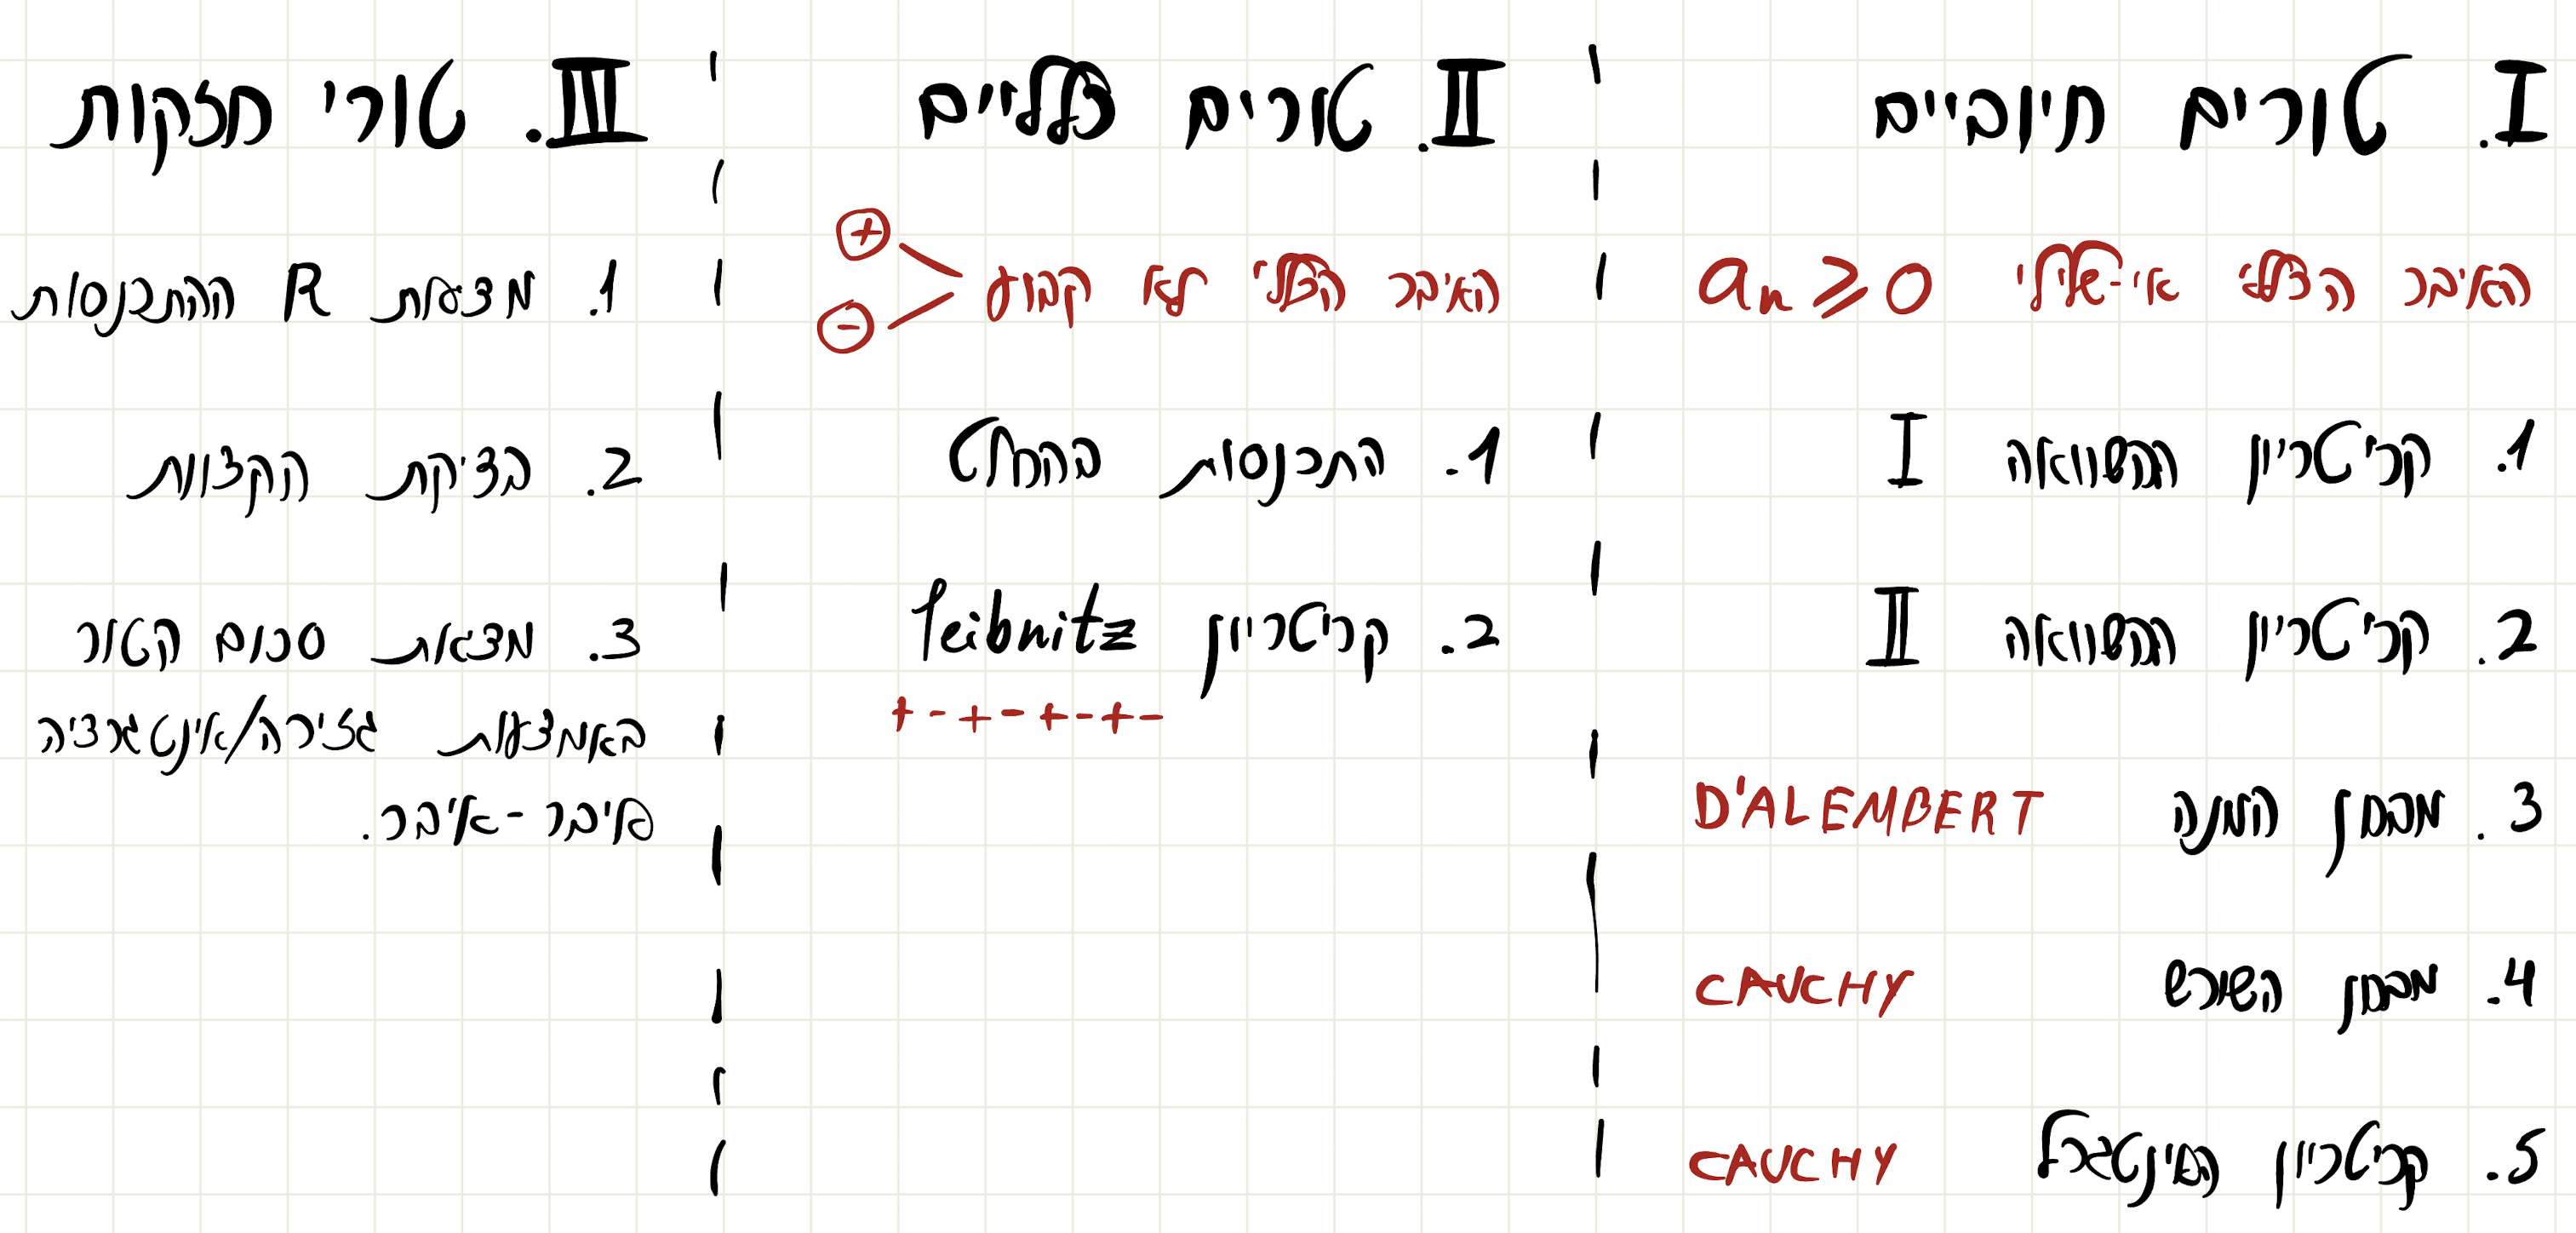 I. טורים חיוביים
האיבר הכללי אי-שלילי aₙ ≥ 0
1. קריטריון ההשוואה I
2. קריטריון ההשוואה II
3. מבחן המנה D'ALEMBERT
4. מבחן השורש CAUCHY
5. קריטריון האינטגרל CAUCHY
II. טורים כלליים
האיבר הכללי לא קבוע
+
-
1. התכנסות בהחלט
2. קריטריון Leibnitz
+ - + - + - + -
III. טורי חזקות
1. מציאת R ההתכנסות
2. בדיקת הקצוות
3. מציאת סכום הטור
באמצעות גזירה/אינטגרציה
איבר-איבר.